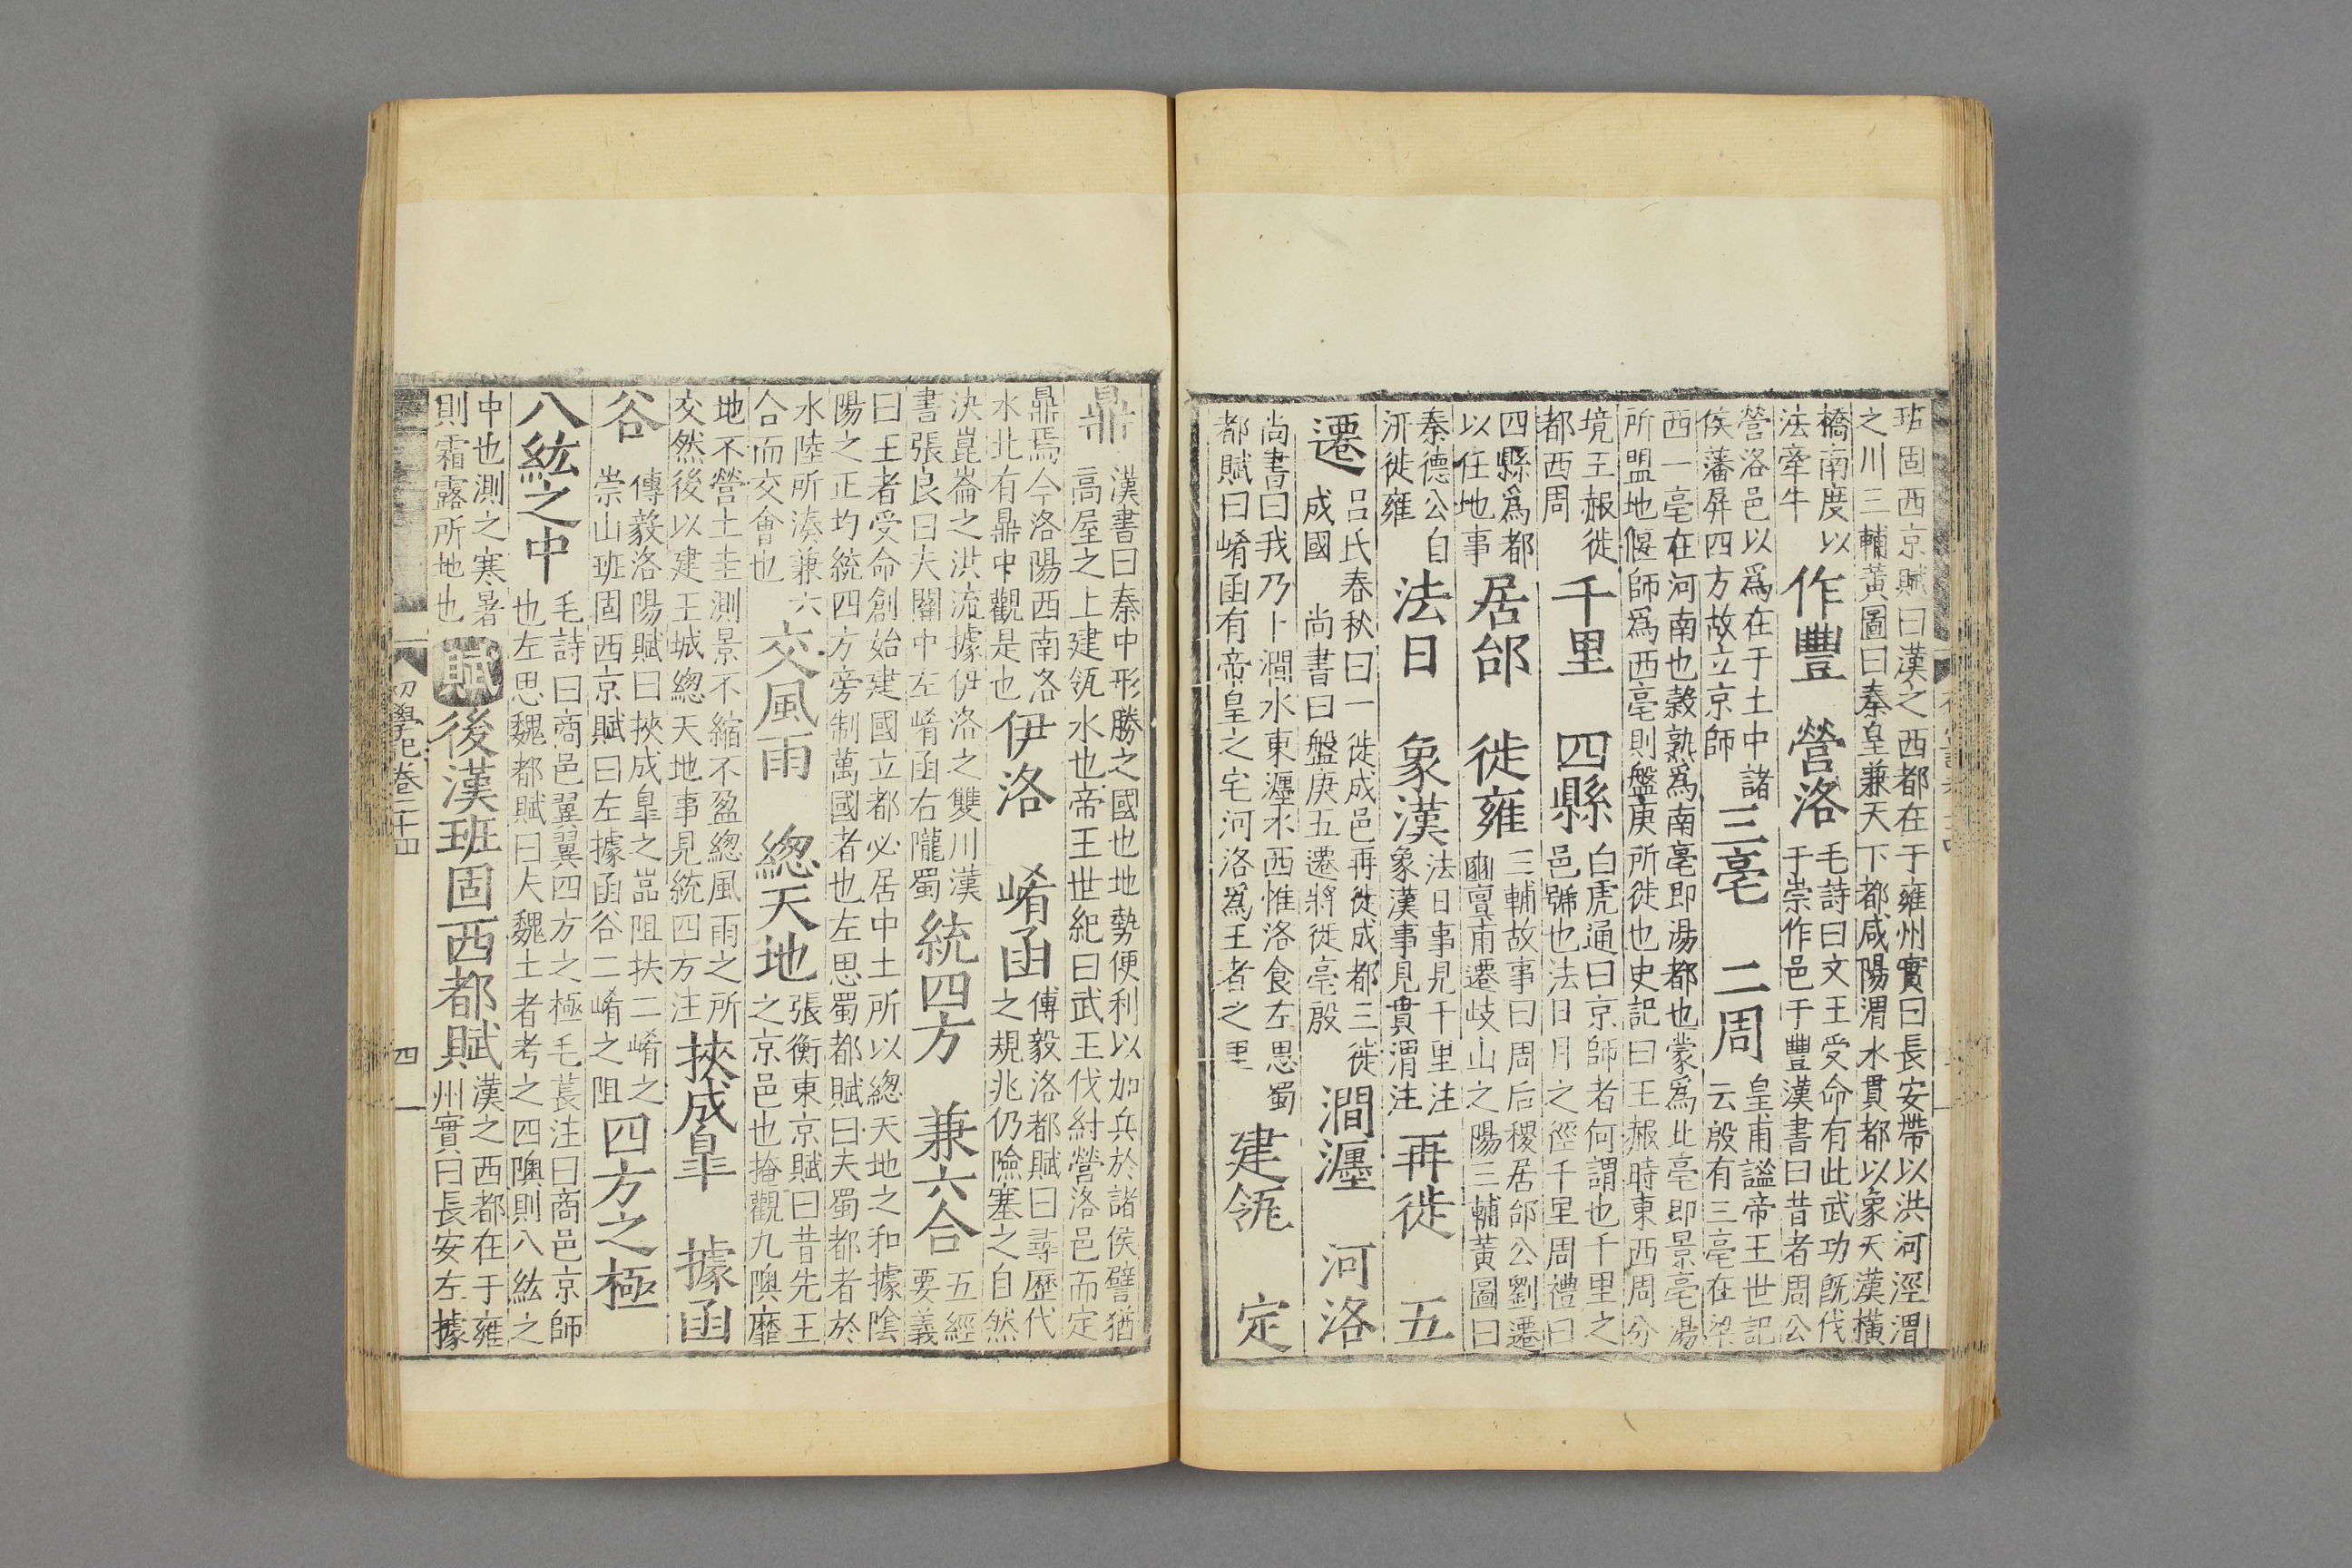 班固西京賦曰漢之西都在于雍州實曰長安帶以洪河涇渭
之川三輔黃圖曰秦皇兼天下都咸陽渭水貫都以象天漢橫
橋南度以
法牽牛
作豐 營洛
毛詩曰文王受命有此武功旣伐
于崇作邑于豐漢書曰昔者周公
營洛邑以爲在于土中諸
侯藩屏四方故立京師
三亳 二周
皇甫謐帝王世記
云殷有三亳在梁
西一亳在河南也穀熟爲南亳即湯都也蒙爲北亳即景亳湯
所盟地偃師爲西亳則盤庚所徙也史記曰王赧時東西周分
境王赧徙
都西周
千里 四縣
白虎通曰京師者何謂也千里之
邑號也法日月之徑千里周禮曰
四縣爲都
以任地事
居邰 徙雍
三輔故事曰周后稷居邰公劉遷
豳亶甫遷岐山之陽三輔黃圖曰
秦德公自
汧徙雍
法日 象漢
法日事見千里注
象漢事見貫渭注
再徙 五
遷
呂氏春秋曰一徙成邑再徙成都三徙
成國 尚書曰盤庚五遷將徙亳殷
澗瀍 河洛
尚書曰我乃卜澗水東瀍水西惟洛食左思蜀
都賦曰崤函有帝皇之宅河洛爲王者之里
建瓴 定
鼎
漢書曰秦中形勝之國也地勢便利以加兵於諸侯譬猶
高屋之上建瓴水也帝王世紀曰武王伐紂營洛邑而定
鼎焉今洛陽西南洛
水北有鼎中觀是也
伊洛 崤函
傅毅洛都賦曰尋歷代
之規兆仍險塞之自然
決崑崙之洪流據伊洛之雙川漢
書張良曰夫關中左崤函右隴蜀
統四方 兼六合
五經
要義
曰王者受命創始建國立都必居中土所以總天地之和據陰
陽之正均統四方旁制萬國者也左思蜀都賦曰夫蜀都者於
水陸所湊兼六
合而交會也
交風雨 總天地
張衡東京賦曰昔先王
之京邑也掩觀九隩靡
地不營土圭測景不縮不盈總風雨之所
交然後以建王城總天地事見統四方注
挾成皐 據函
谷
傅毅洛陽賦曰挾成皐之嵓阻扶二崤之
崇山班固西京賦曰左據函谷二崤之阻
四方之極
八紘之中
毛詩曰商邑翼翼四方之極毛萇注曰商邑京師
也左思魏都賦曰大魏土者考之四隩則八紘之
中也測之寒暑
則霜露所地也
賦
後漢班固西都賦
漢之西都在于雍
州實曰長安左據
初學記卷二十四
四